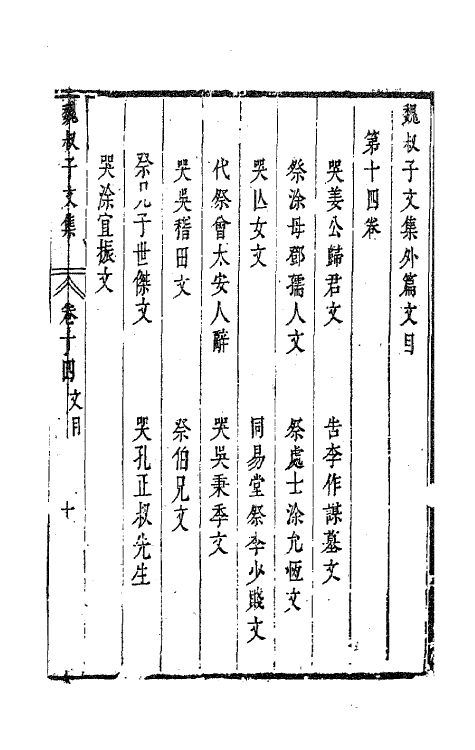 魏叔子文集外篇文目
第十四卷
哭姜公歸君文　告李作謀墓文
祭涂母鄧孺人文　祭處士涂允恆文
哭亡女文　同易堂祭李少賤文
代祭曾太安人辭　哭吳秉季文
哭吳稽田文　祭伯兄文
祭兄子世傑文　哭孔正叔先生
哭涂宜振文
魏叔子文集　卷十四　文目　十